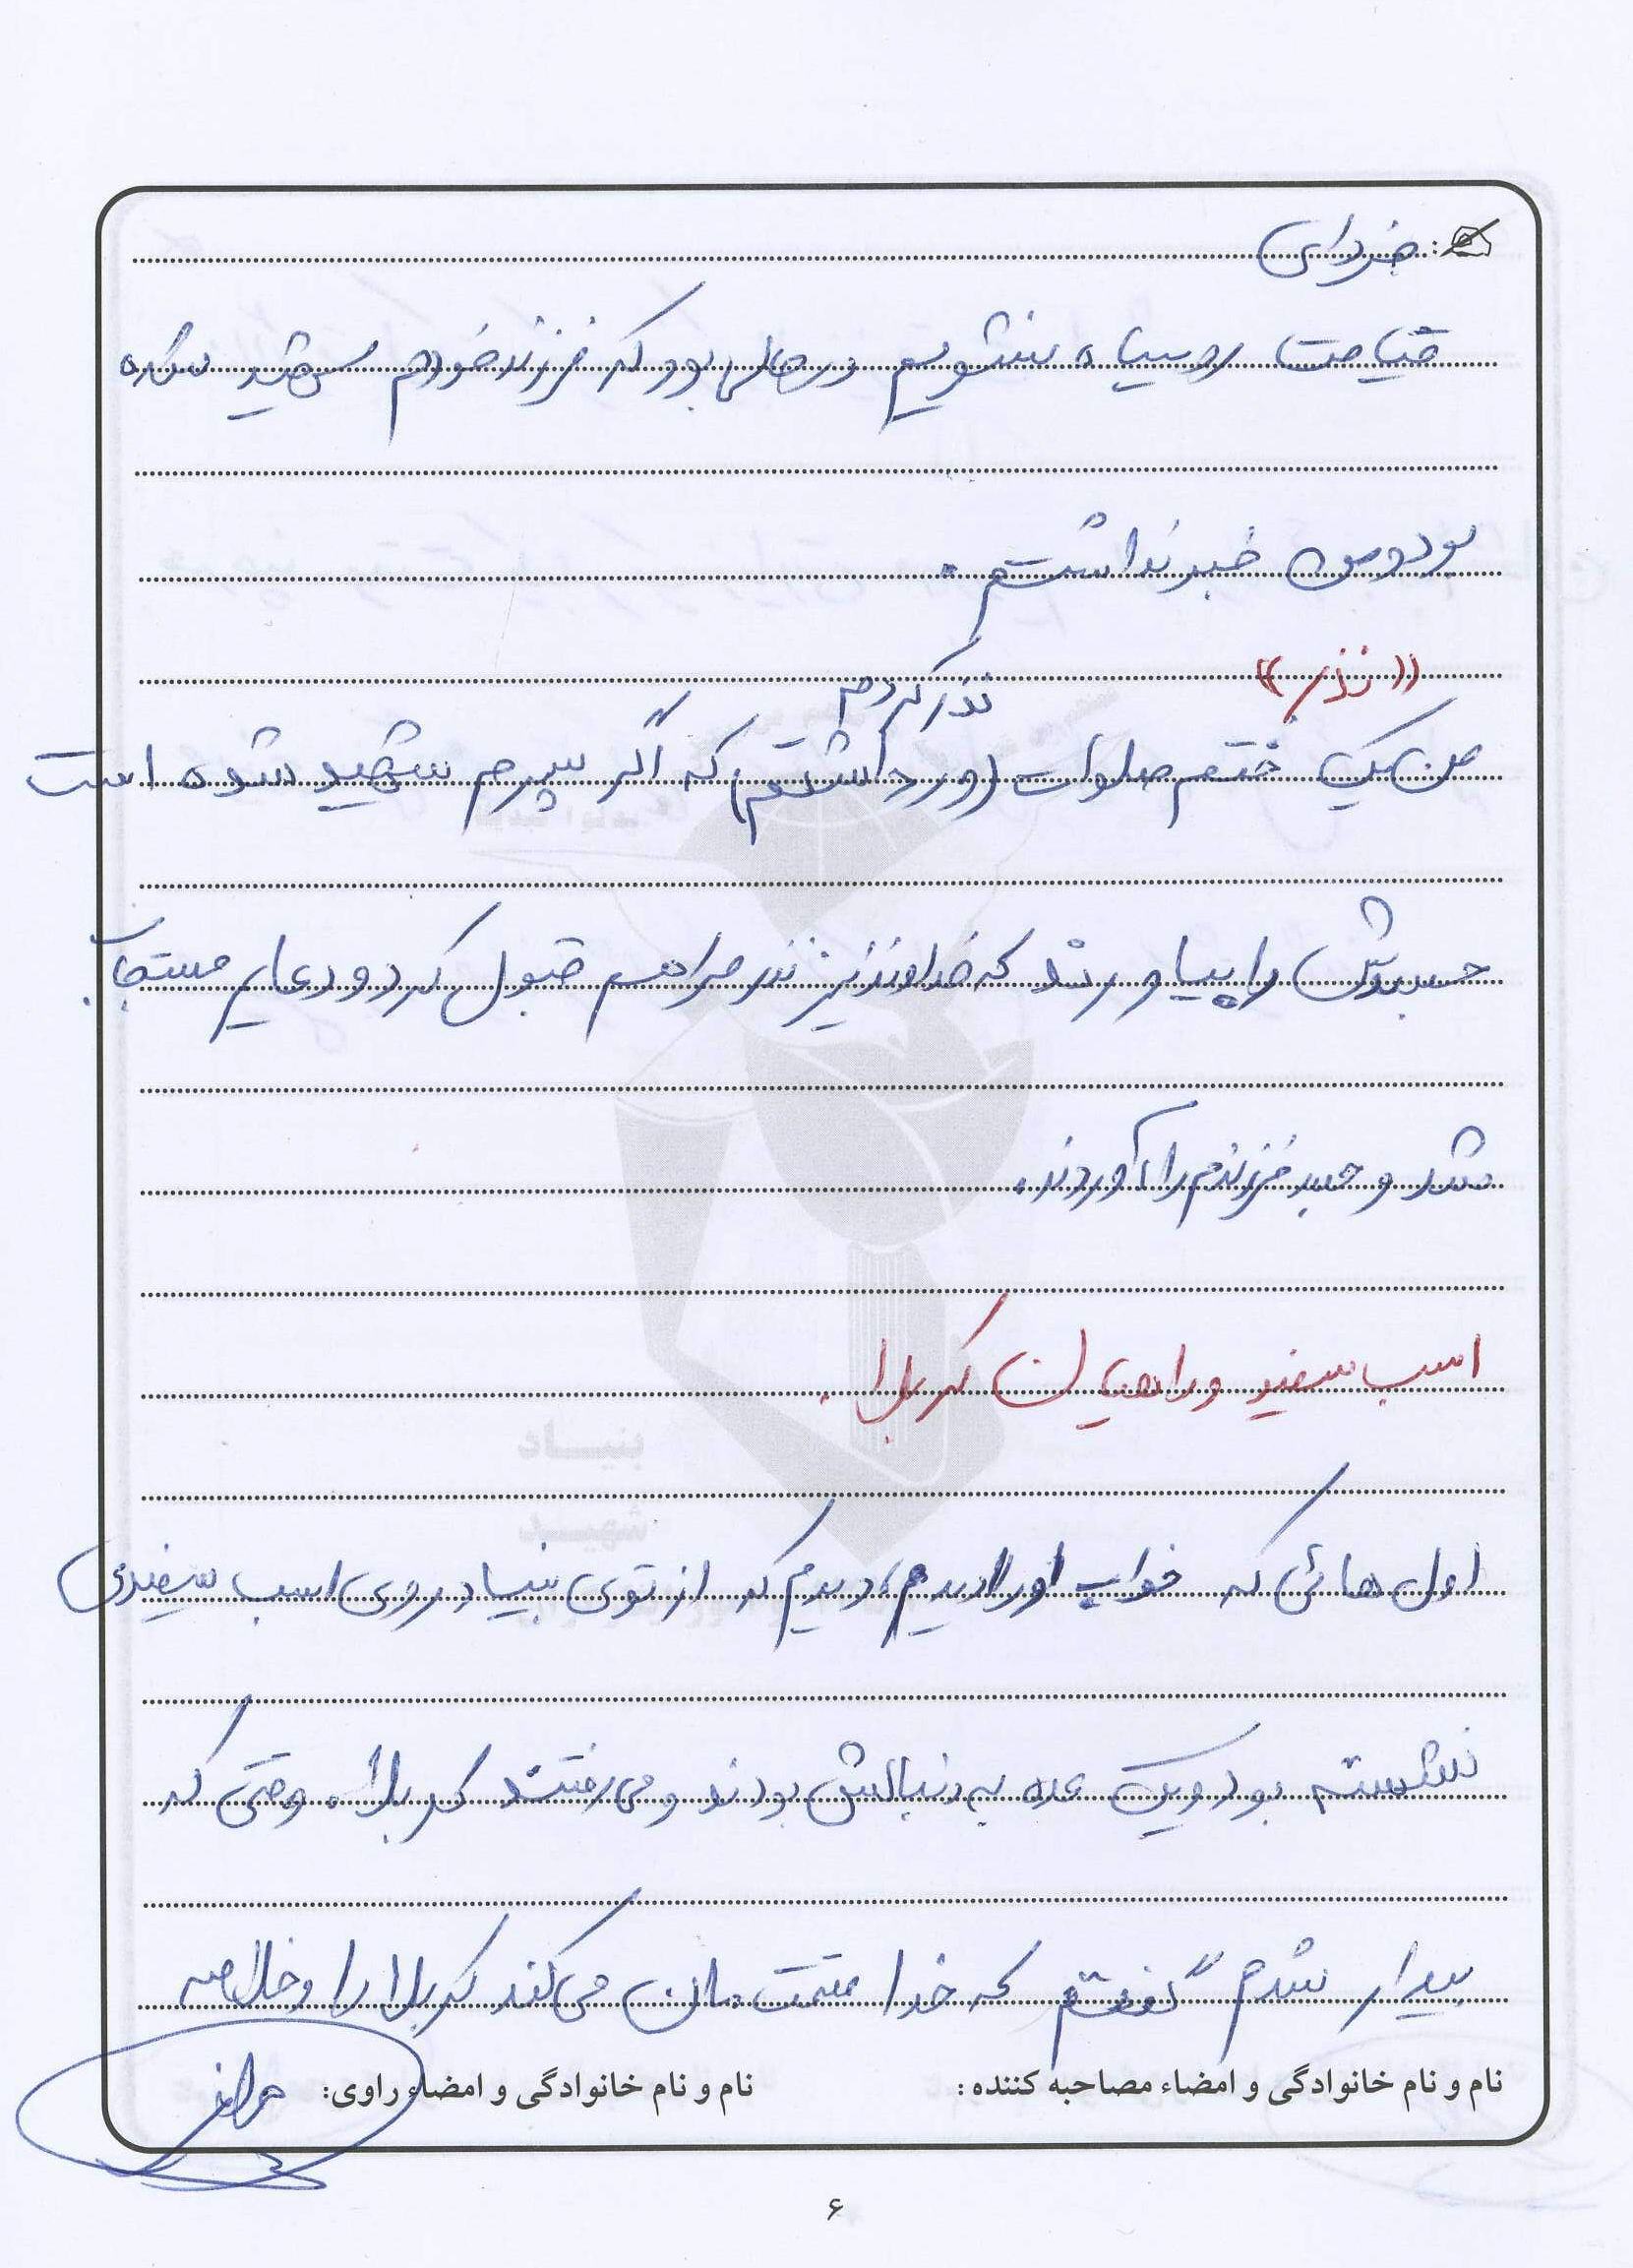 فردای
قیامت روسیاه نشویم درحالی بود که فرزند خودم شهید شده
بود و من خبر نداشتم.
«نذر»
نذر کردم
من یک ختم صلوات (ورد داشتم) که اگر پسرم شهید شده است
جسدش را بیاورند که خداوند نیز نذر مرا هم قبول کرد و دعایم مستجاب
شد و جسد فرزندم را آوردند.
اسب سفید و راهیان کربلا.
بنیاد
شهید
اول هائی که خواب او را دیدم، دیدم که از توی بنیاد روی اسب سفیدی
نشسته بود و یک عده به دنبالش بودند و می رفتند کربلا. وقتی که
بیدار شدم گفتم که خدا قسمت مان می کند کربلا را و خلاصه
نام و نام خانوادگی و امضاء مصاحبه کننده: نام و نام خانوادگی و امضاء راوی:
۶